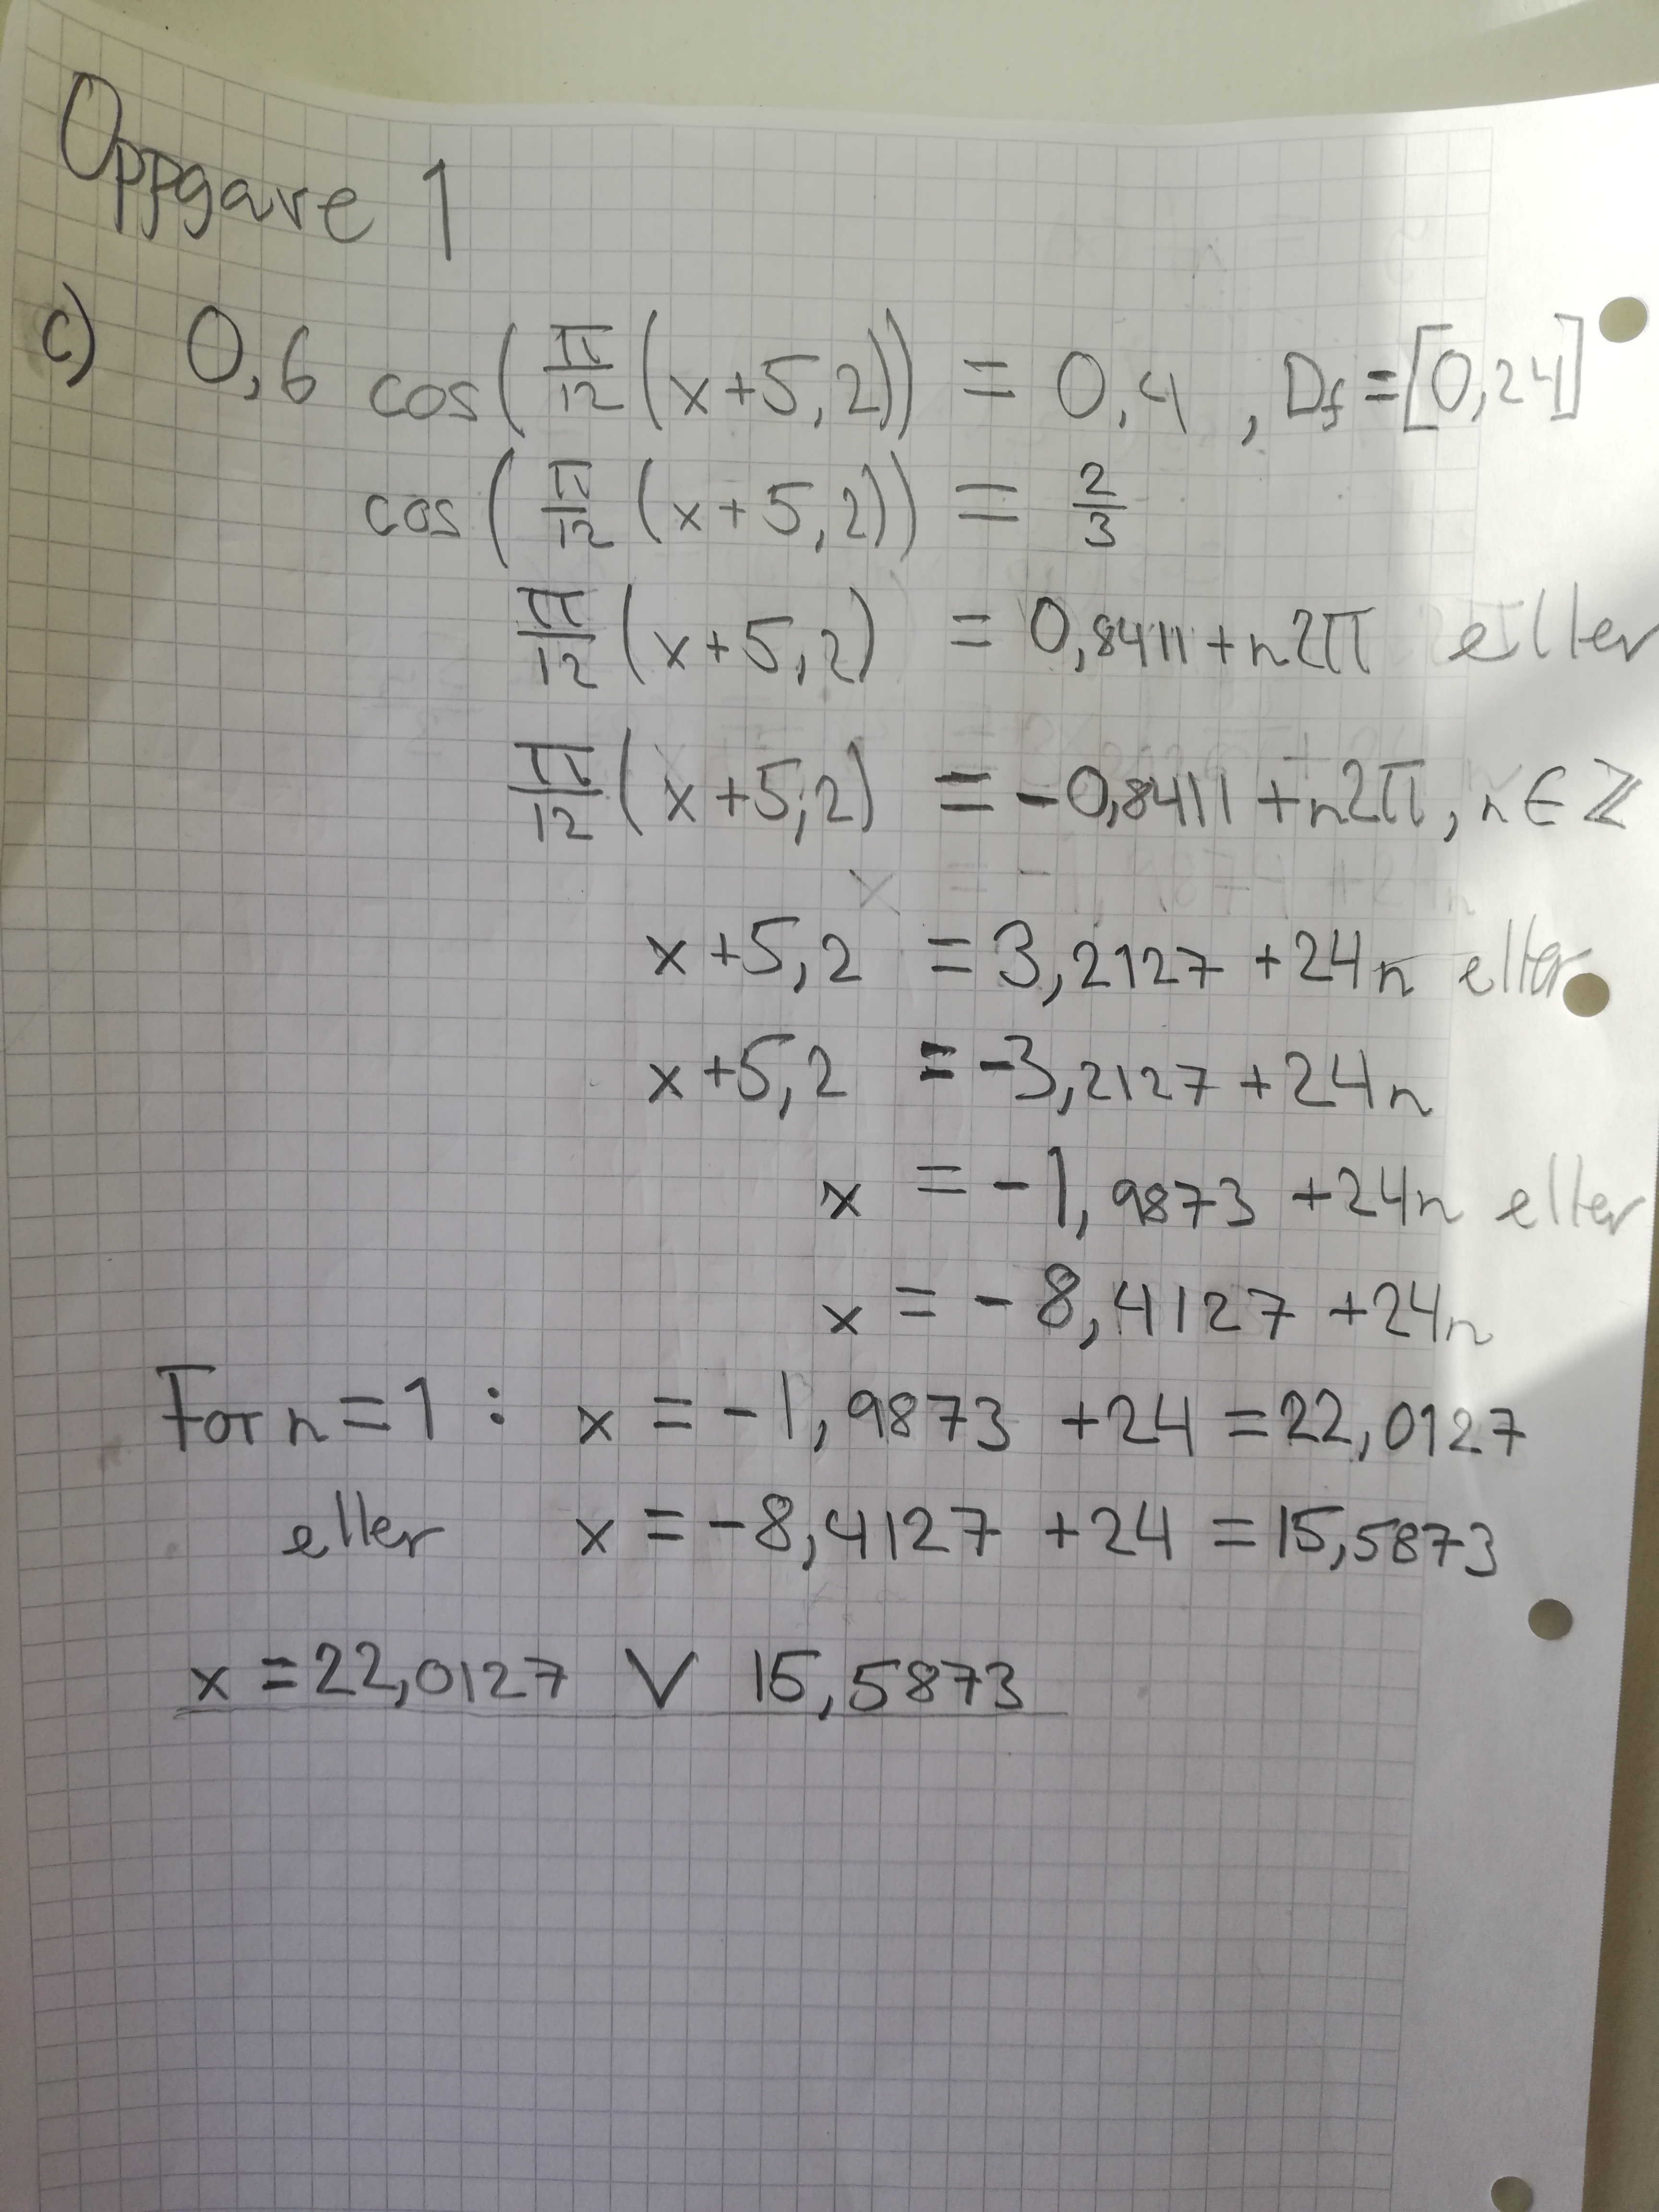 Oppgave 1
c) 0,6 cos(π/12 (x+5,2)) = 0,4 , Df=[0,24]
cos(π/12 (x+5,2)) = 2/3
π/12 (x+5,2) = 0,8411+n2π eller
π/12 (x+5,2) = -0,8411+n2π, n∈ℤ
x+5,2 = 3,2127 +24n eller
x+5,2 = -3,2127 +24n
x = -1,9873 +24n eller
x = -8,4127 +24n
For n=1 : x = -1,9873 +24 =22,0127
eller x = -8,4127 +24 =15,5873
x =22,0127 ∨ 15,5873